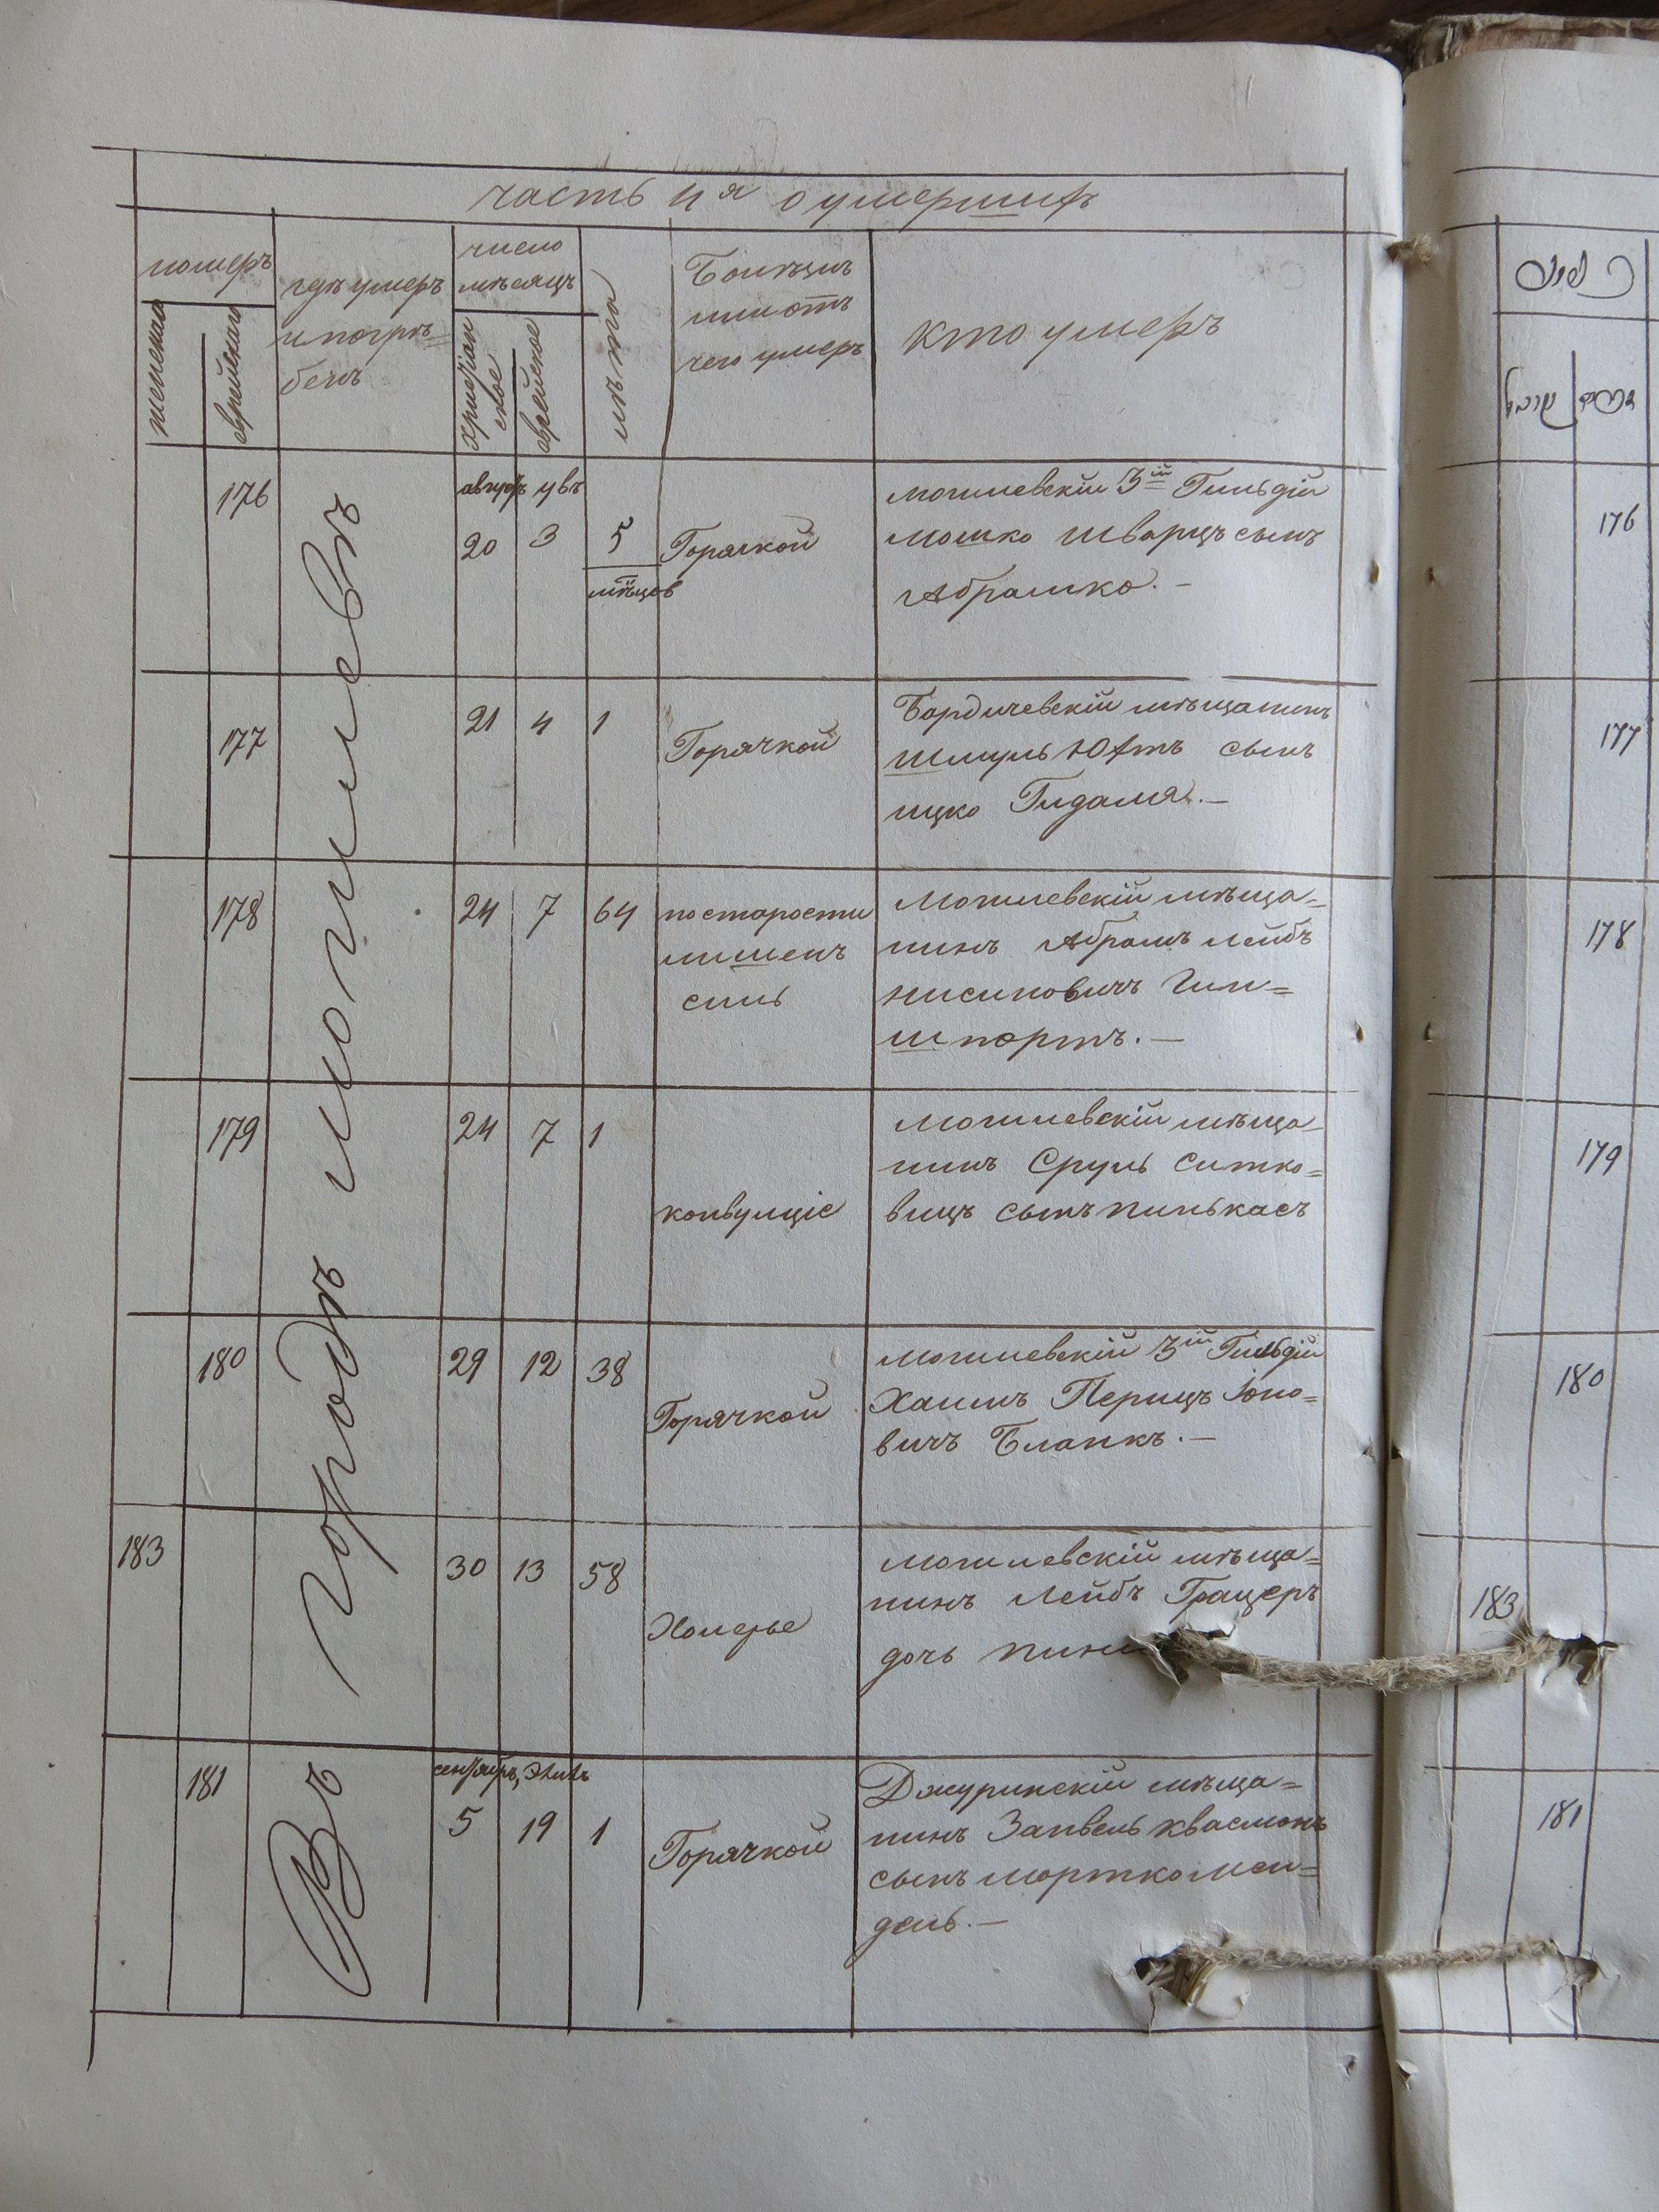 часть IIя о умершихъ
номеръ
женская
еврейская
гдѣ умеръ
и погрѣ=
бенъ
число
мѣсяцъ
христіан
ское
еврейское
лѣта
Болѣзнь
или отъ
чего умеръ
кто умеръ
Въ городѣ могилевѣ
176
августъ увъ
20 3 5
мѣсцов
Горячкой
могилевскій 3ій Гильдій
мошко Шварцъ сынъ
Абрамко. —
177
21 4 1
Горячкой
Бердичевскій мѣщанинъ
Шмуль Юфтъ сынъ
ицко Гидаля. —
178
24 7 64
по старости
лишенъ
силъ
Могилевскій мѣща=
нинъ Абрамъ Лейбъ
нисиновичъ Гин=
шпортъ. —
179
24 7 1
конвулціе
Могилевскій мѣща=
нинъ Сруль Ситко=
вицъ сынъ пинькасъ
180
29 12 38
Горячкой
Могилевскій 3ій Гильдій
Хаимъ Перицъ Іоно=
вичъ Бланкъ. —
183
30 13 58
Холерье
могилевскій мѣща=
нинъ Лейбъ Грацеръ
дочь
181
сентябръ,
5 19 1
Горячкой
Джуринскій мѣща=
нинъ Занвель квасманъ
сынъ мортко мен=
дель. —
176
177
178
179
180
183
181